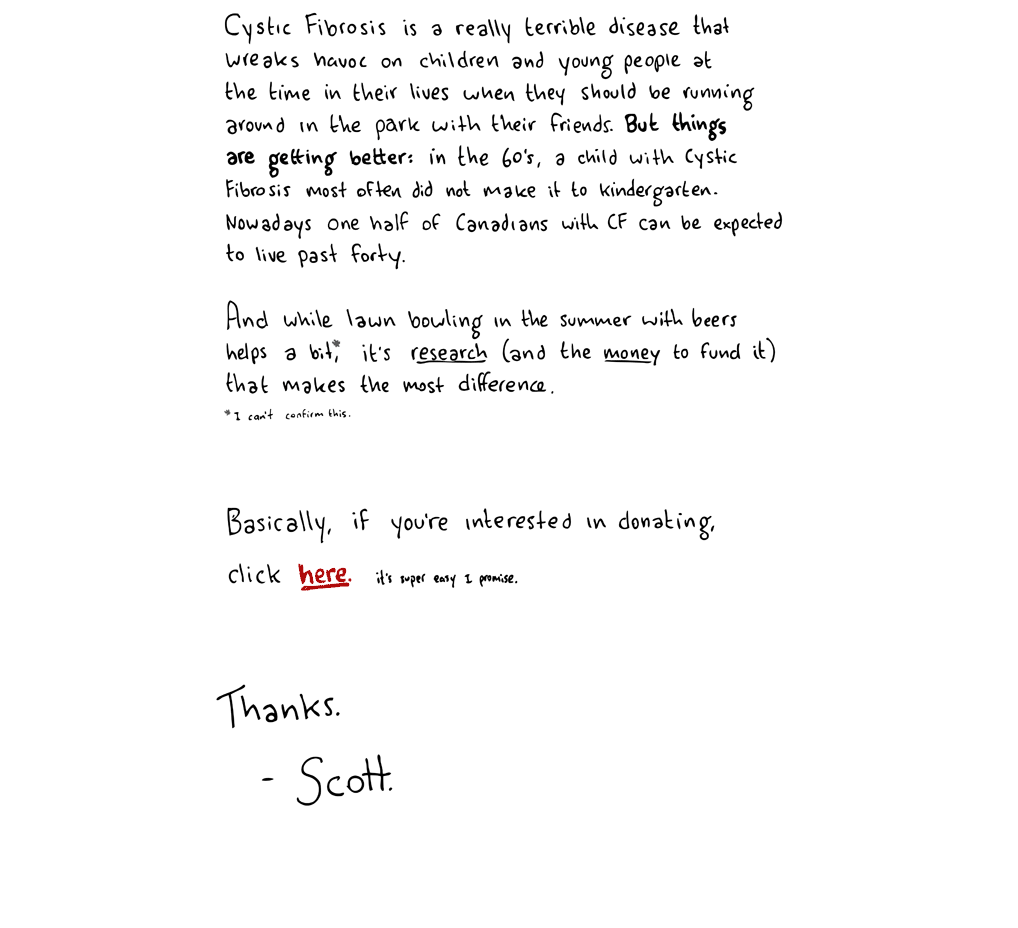 Cystic Fibrosis is a really terrible disease that
wreaks havoc on children and young people at
the time in their lives when they should be running
around in the park with their friends. But things
are getting better: in the 60's, a child with Cystic
Fibrosis most often did not make it to kindergarten.
Nowadays one half of Canadians with CF can be expected
to live past forty.
And while lawn bowling in the summer with beers
helps a bit*, it's research (and the money to fund it)
that makes the most difference.
*I can't confirm this.
Basically, if you're interested in donating,
click here. it's super easy I promise.
Thanks.
- Scott.